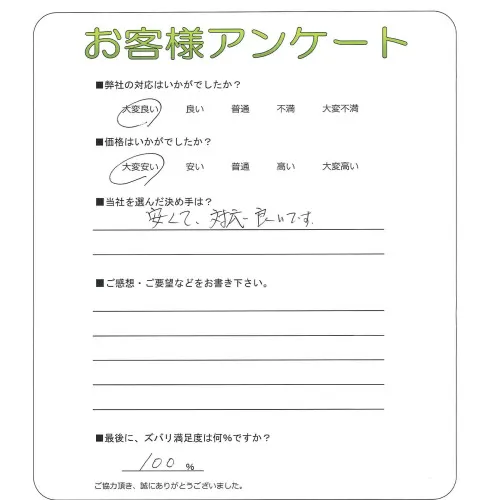 お客様アンケート
■弊社の対応はいかがでしたか？
大変良い 良い 普通 不満 大変不満
■価格はいかがでしたか？
大変安い 安い 普通 高い 大変高い
■当社を選んだ決め手は？
安くて、対応良いです
■ご感想・ご要望などをお書き下さい。
■最後に、ズバリ満足度は何%ですか？
100 %
ご協力頂き、誠にありがとうございました。